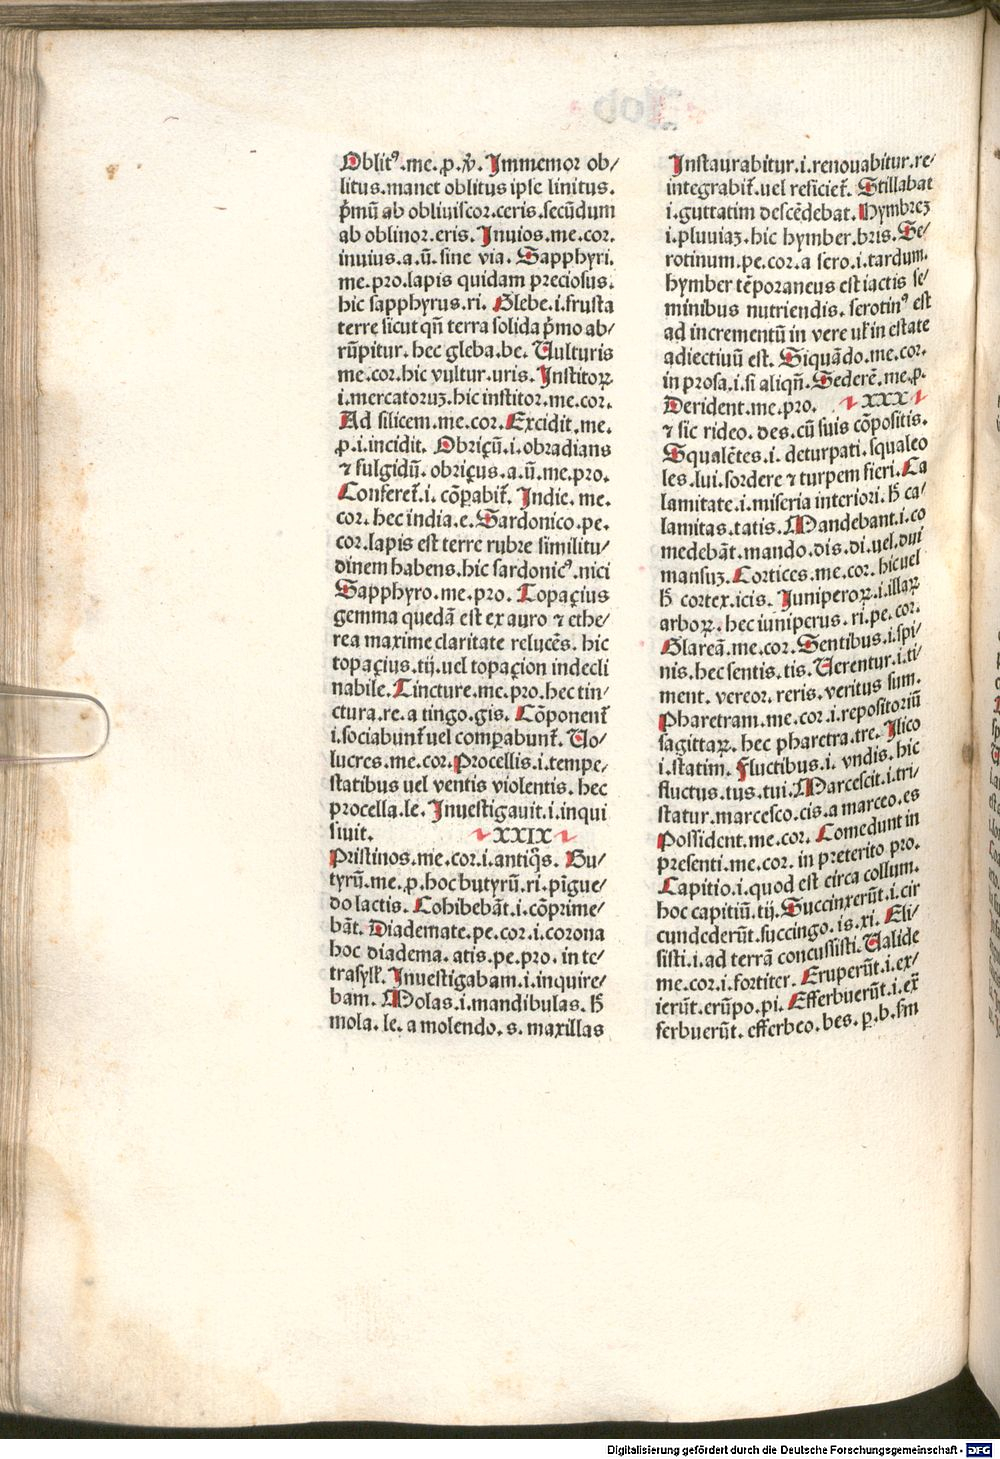 Oblitꝰ.me.ꝓ.v̄. Immemor ob/
litus.manet oblitus ipse linitus.
p̄mū ab obliuiscor.ceris.secūdum
ab oblinor.eris. Inuios.me.cor.
inuius.a.ū. sine via. Sapphyri.
me.pro.lapis quidam preciosus.
hic sapphyrus.ri. Glebe.i.frusta
terre sicut qn̄ terra solida p̄mo ab/
rūpitur. hec gleba.be. Uulturis
me.cor.hic vultur.uris. Institoꝝ
i.mercatoruꝫ.hic institor.me.cor.
Ad silicem.me.cor.Excidit.me.
ꝓ.i.incidit. Obriçū.i.obradians
⁊ fulgidū. obriçus.a.ū.me.pro.
Conferet̄.i.cōꝑabit̄. Indie. me.
cor. hec india.e. Sardonico.pe.
cor.lapis est terre rubre similitu/
dinem habens.hic sardonicꝰ.nici
Sapphyro.me.pro. Topaçius
gemma quedā est ex auro ⁊ ethe/
rea maxime claritate relucēs. hic
topaçius.tij.uel topaçion indecli
nabile. Tincture.me.pro.hec tin/
ctura.re.a tingo.gis. Cōponent̄
i.sociabunt̄ uel comꝑabunt̄. Uo/
lucres.me.cor.Procellis.i.tempe/
statibus uel ventis violentis. hec
procella.le. Inuestigauit.i.inqui
siuit. XXIX
Pristinos.me.cor.i.antiq̄s. Bu/
tyrū.me.ꝓ.hoc butyrū.ri.pīgue/
do lactis. Cohibebāt.i.cōprime/
bāt. Diademate.pe.cor.i.corona
hoc diadema. atis.pe.pro. in te/
trasyll̄. Inuestigabam.i.inquire/
bam. Molas.i.mandibulas. h̄
mola.le. a molendo.s. maxillas
Instaurabitur.i.renouabitur.re/
integrabit̄.uel reficiet̄. Stillabat
i.guttatim descēdebat. Hymbreꝫ
i.pluuiaꝫ.hic hymber.bris. Se/
rotinum.pe.cor.a sero.i.tardum.
hymber tēporaneus est iactis se/
minibus nutriendis. serotinꝰ est
ad incrementū in vere ul̄ in estate
adiectiuū est. Siquādo.me.cor.
in prosa.i.si aliqn̄. Sederē.me.ꝓ.
Derident.me.pro. XXX
⁊ sic rideo. des.cū suis cōpositis.
Squalētes.i. deturpati.squaleo
les.lui.sordere ⁊ turpem fieri. Ca
lamitate.i.miseria interiori. h̄ ca/
lamitas.tatis. Mandebant.i.co
medebāt.mando.dis.di.uel.dui
mansuꝫ. Cortices.me.cor. hic uel
h̄ cortex.icis. Juniperoꝝ.i.illaꝝ
arboꝝ. hec iuniperus. ri.pe.cor.
Glareā.me.cor. Sentibus.i.spi/
nis.hec sentis.tis. Uerentur.i.ti/
ment. vereor. reris. veritus sum.
Pharetram.me.cor.i.repositoriū
sagittaꝝ. hec pharetra.tre. Ilico
i.statim. Fluctibus.i. vndis. hic
fluctus.tus.tui. Marcescit.i.tri/
statur.marcesco.cis.a marceo.es
Possident.me.cor. Comedunt in
presenti.me.cor. in preterito pro.
Capitio.i.quod est circa collum.
hoc capitiū.tij. Succinxerūt.i.cir
cundederūt.succingo.is.xi. Eli/
sisti.i.ad terrā concussisti. Ualide
me.cor.i.fortiter. Eruperūt.i.ex/
ierūt.erūpo.pi. Efferbuerūt.i.ex̄
ferbuerūt. efferbeo.bes.ꝑ.b.sm̄
Digitalisierung gefördert durch die Deutsche Forschungsgemeinschaft - DFG